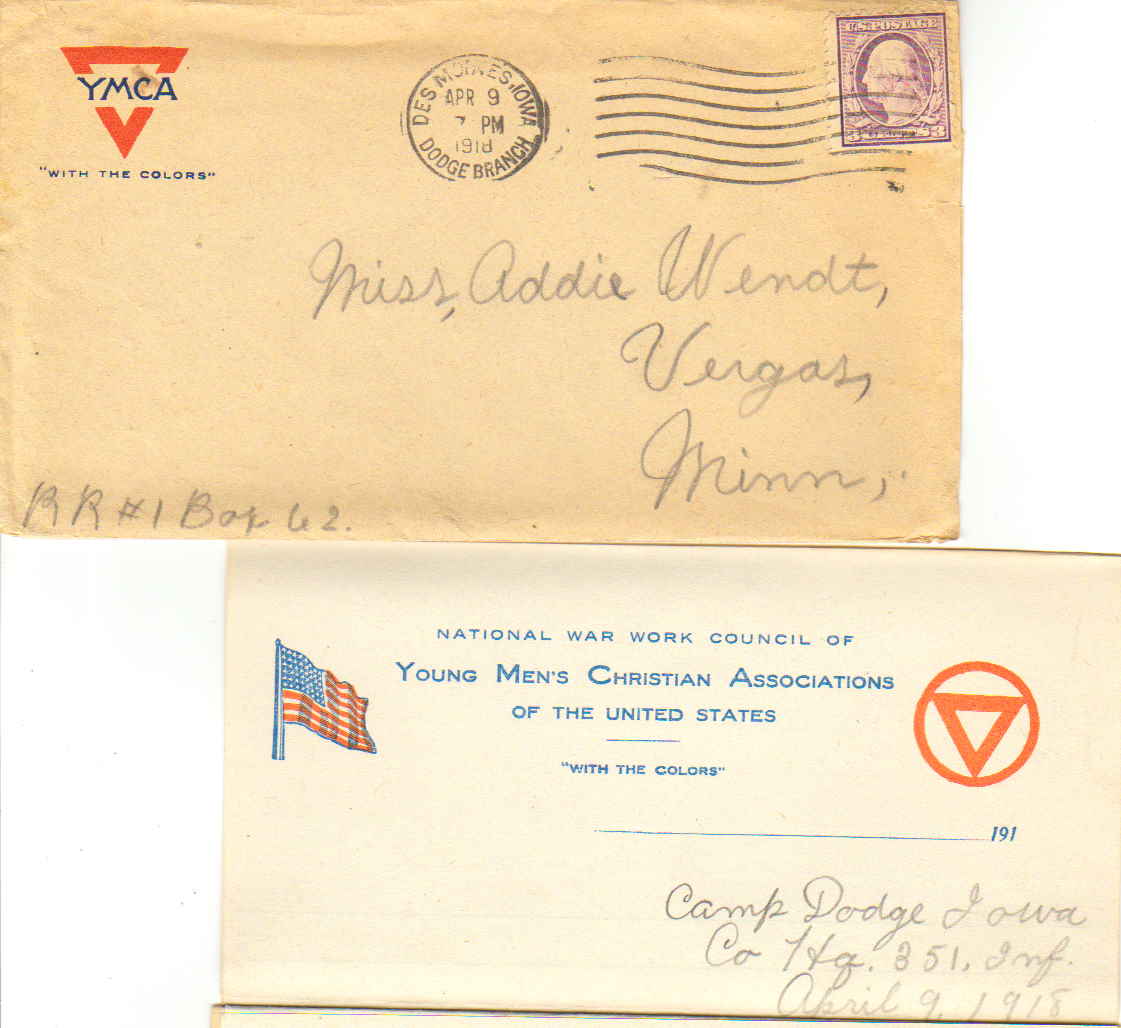 YMCA
"WITH THE COLORS"
DES MOINES, IOWA
APR 9
7 PM
1918
DODGE BRANCH
U.S. POSTAGE
3 3
Miss, Addie Wendt,
Vergas,
Minn,.
RR #1 Box 62.
NATIONAL WAR WORK COUNCIL OF
YOUNG MEN'S CHRISTIAN ASSOCIATIONS
OF THE UNITED STATES
"WITH THE COLORS"
191
Camp Dodge Iowa
Co Hq. 351, Inf.
April 9, 1918